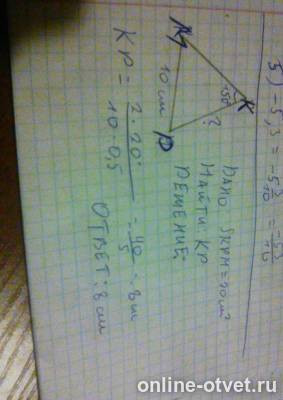 5) -5,3 = -5 3/10 = -53/10
M
K
?
10 см
P
Дано: SKPM=20см²
Найти: KP
Решение:
KP = 2·20/10·0,5 = 40/5 = 8см
Ответ: 8 см
online-otvet.ru